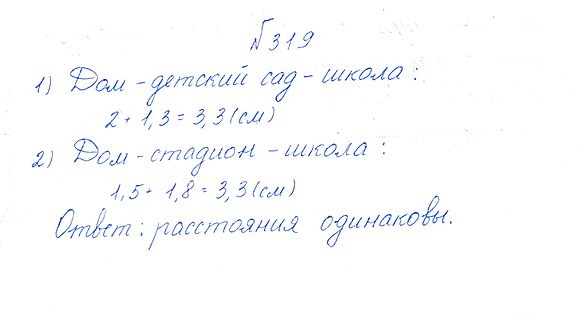 №319
1) Дом - детский сад - школа :
2 + 1,3 = 3,3 (см)
2) Дом - стадион - школа :
1,5 + 1,8 = 3,3 (см)
Ответ : расстояния одинаковы.